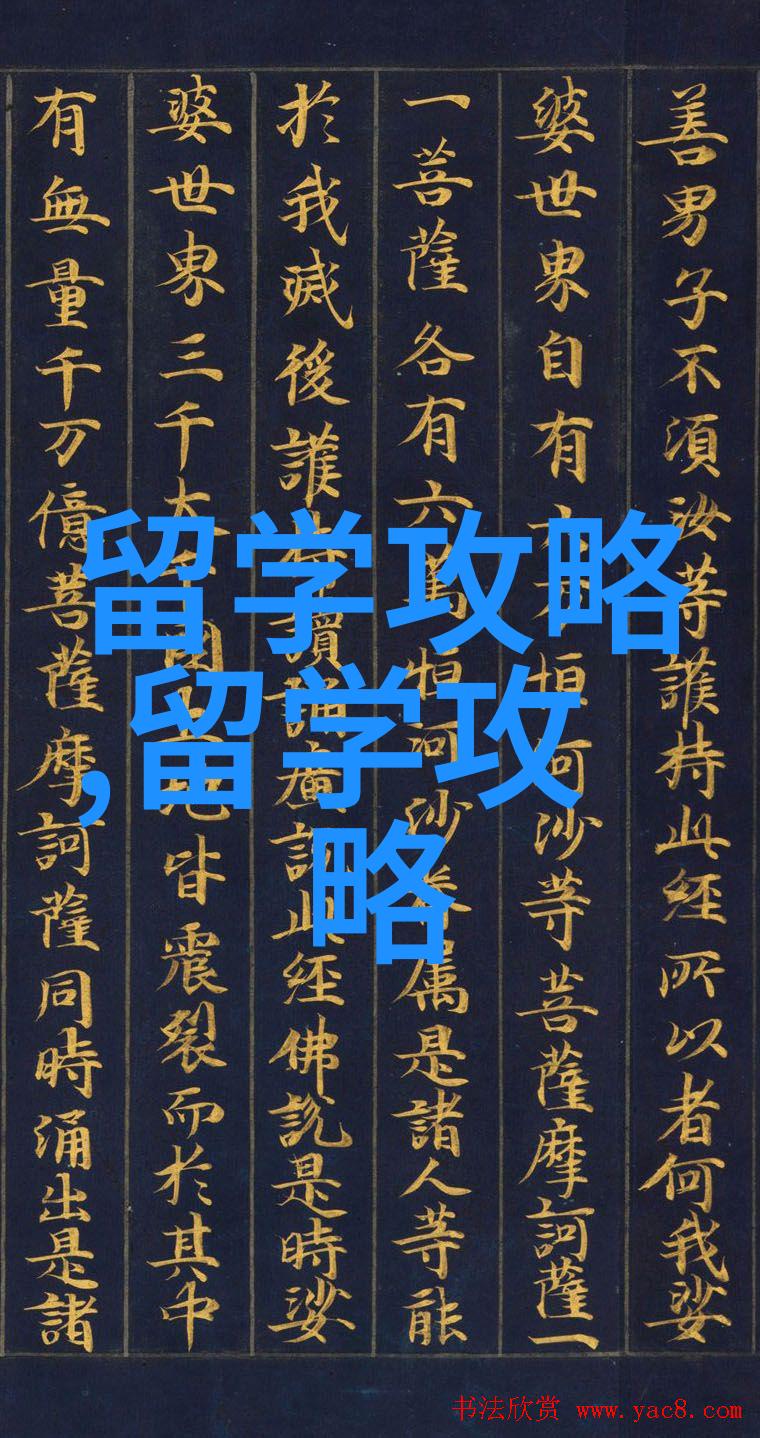 善男子不須汝等護持此經所以者何我娑
婆世界自有六万恒河沙等菩薩摩訶薩一
一菩薩各有六萬恒河沙眷属是諸人等能
於我滅後護持讀誦廣說此經佛說是時娑
婆世界三千大千國地皆震裂而於其中
有無量千万億菩薩摩訶薩同時涌出是諸
留学攻略
,留学攻
略
书法欣赏 www.yac8.com